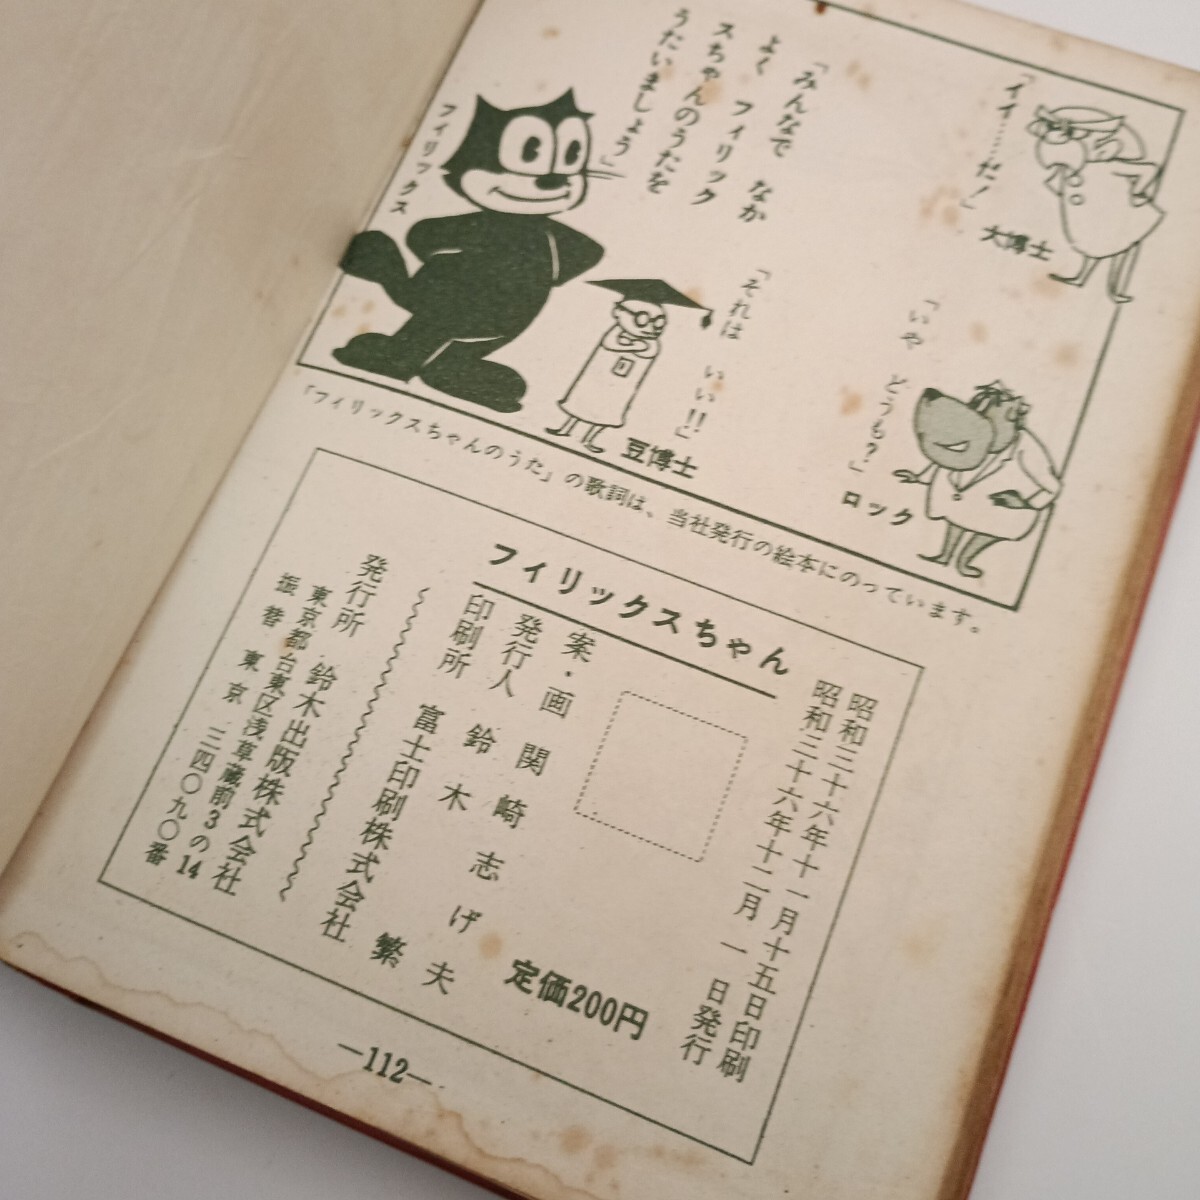 「イイ……だ！」
大博士
「みんなで　なか
よく　フィリック
スちゃんのうたを
うたいましょう」
フィリックス
「いや　どうも？」
ロック
「それは　いい!!」
豆博士
「フィリックスちゃんのうた」の歌詞は、当社発行の絵本にのっています。
フィリックスちゃん
昭和三十六年十一月十五日印刷
昭和三十六年十二月　一　日発行
定価200円
案・画　関崎志げ夫
発行人　鈴木　繁
印刷所　富士印刷株式会社
発行所　鈴木出版株式会社
東京都台東区浅草蔵前3の14
振替　東京　三四〇九〇番
—112—